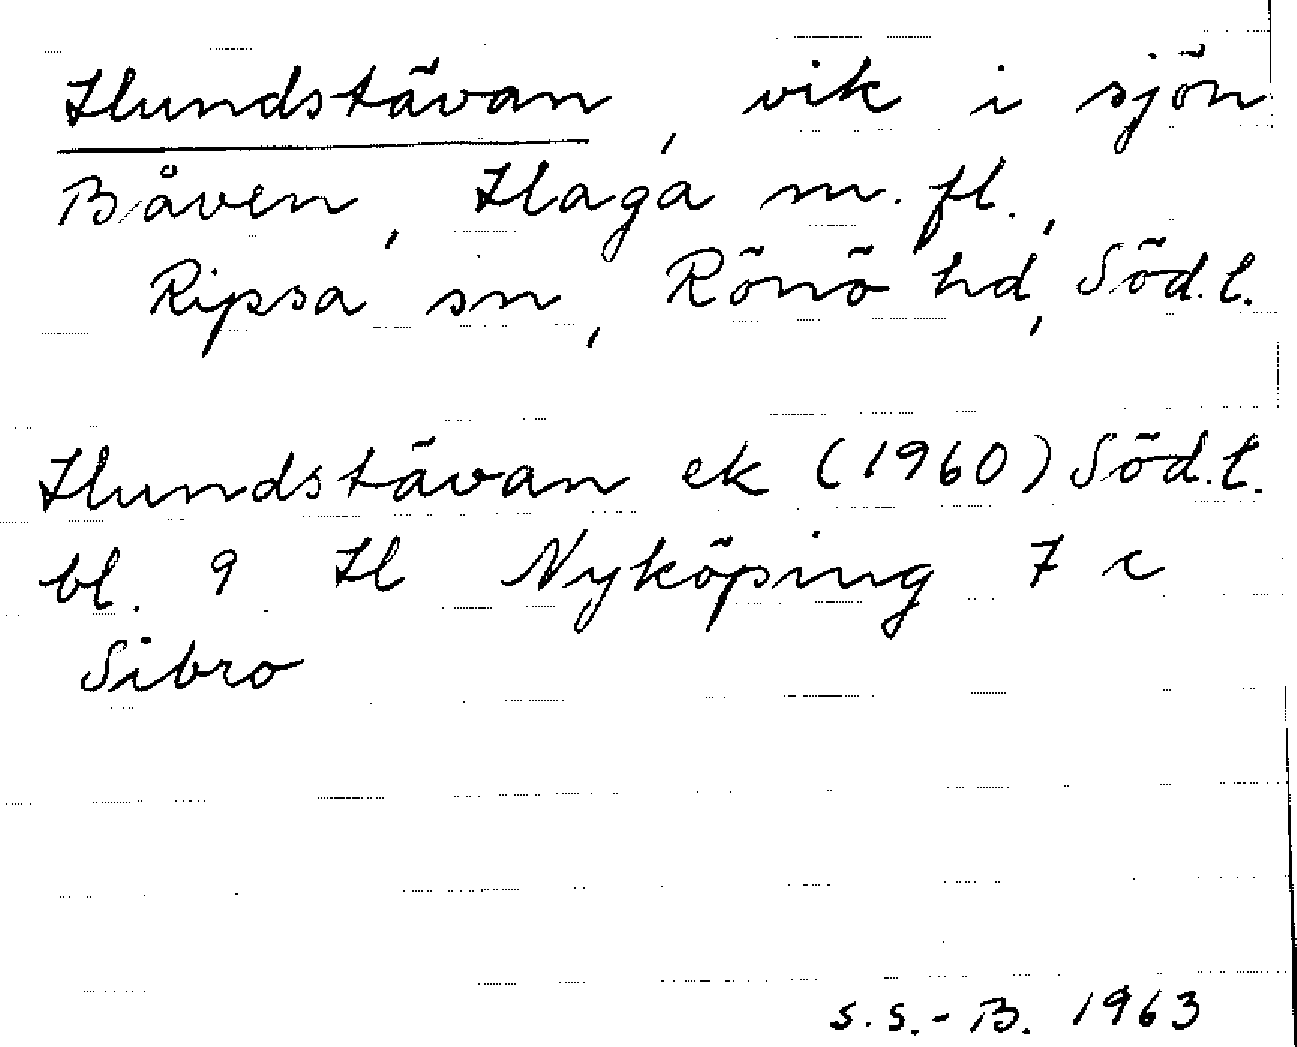 Hundstävan, vik i sjön
Båven, Haga m. fl.,
Ripsa sn, Rönö hd, Söd.l.
Hundstävan ek (1960) Söd.l.
bl. 9 H Nyköping 7 c
Sibro
s.s.-B. 1963